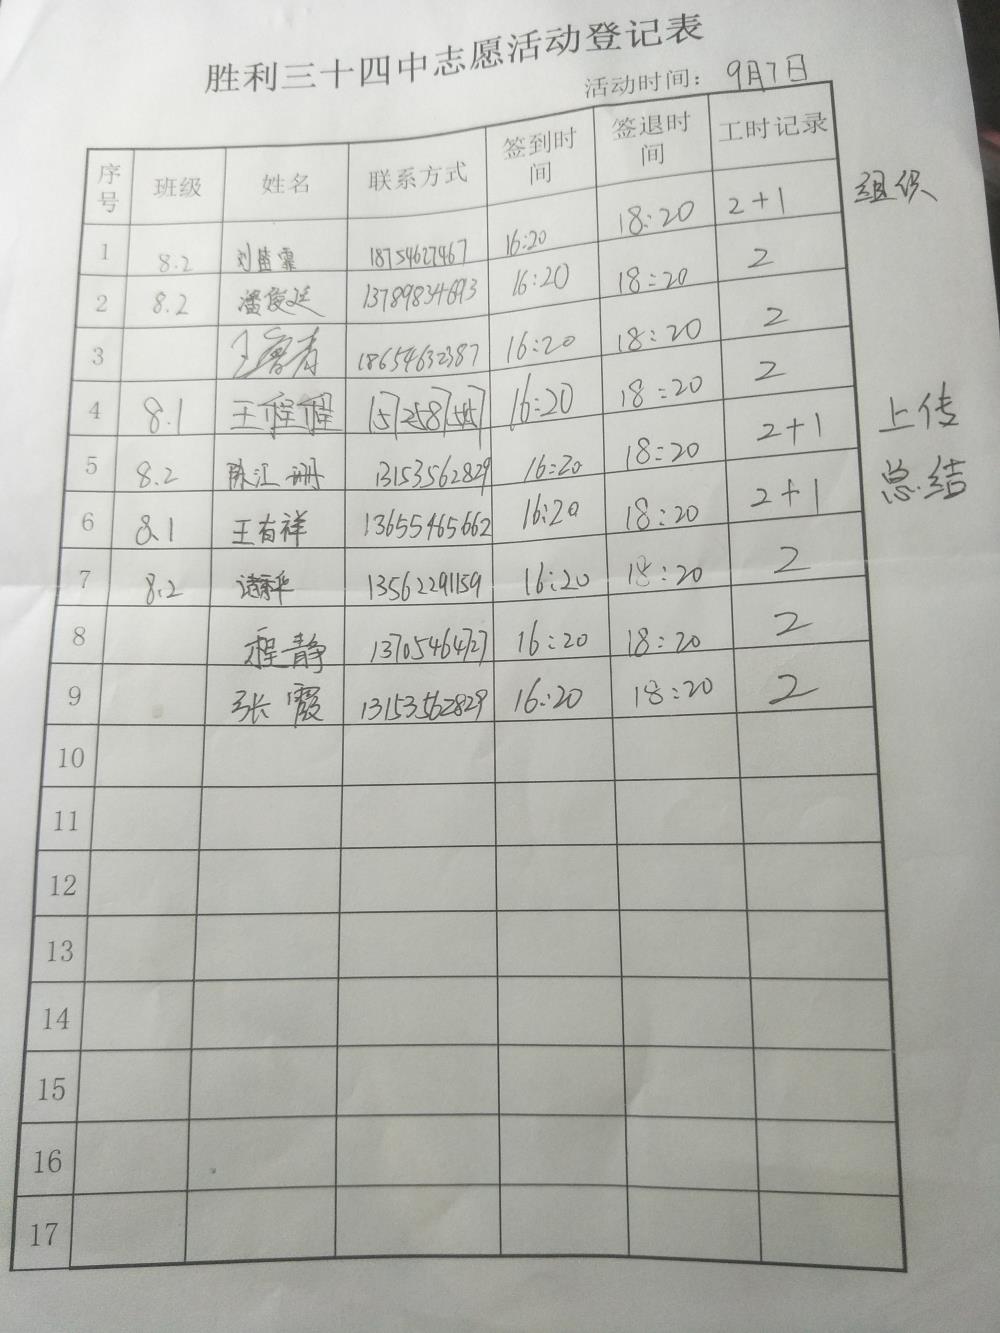 胜利三十四中志愿活动登记表
活动时间: 9月7日
序号 班级 姓名 联系方式 签到时间 签退时间 工时记录
1 8.2 18754627467 16:20 18:20 2+1 组织
2 8.2 潘俊廷 13789834693 16:20 18:20 2
3 18654632387 16:20 18:20 2
4 8.1 王程程 16:20 18:20 2
5 8.2 陈江珊 13153562829 16:20 18:20 2+1 上传
6 8.1 王有祥 13655465662 16:20 18:20 2+1 总结
7 8.2 13562291159 16:20 18:20 2
8 程静 13705464727 16:20 18:20 2
9 张霞 13153562829 16:20 18:20 2
10
11
12
13
14
15
16
17